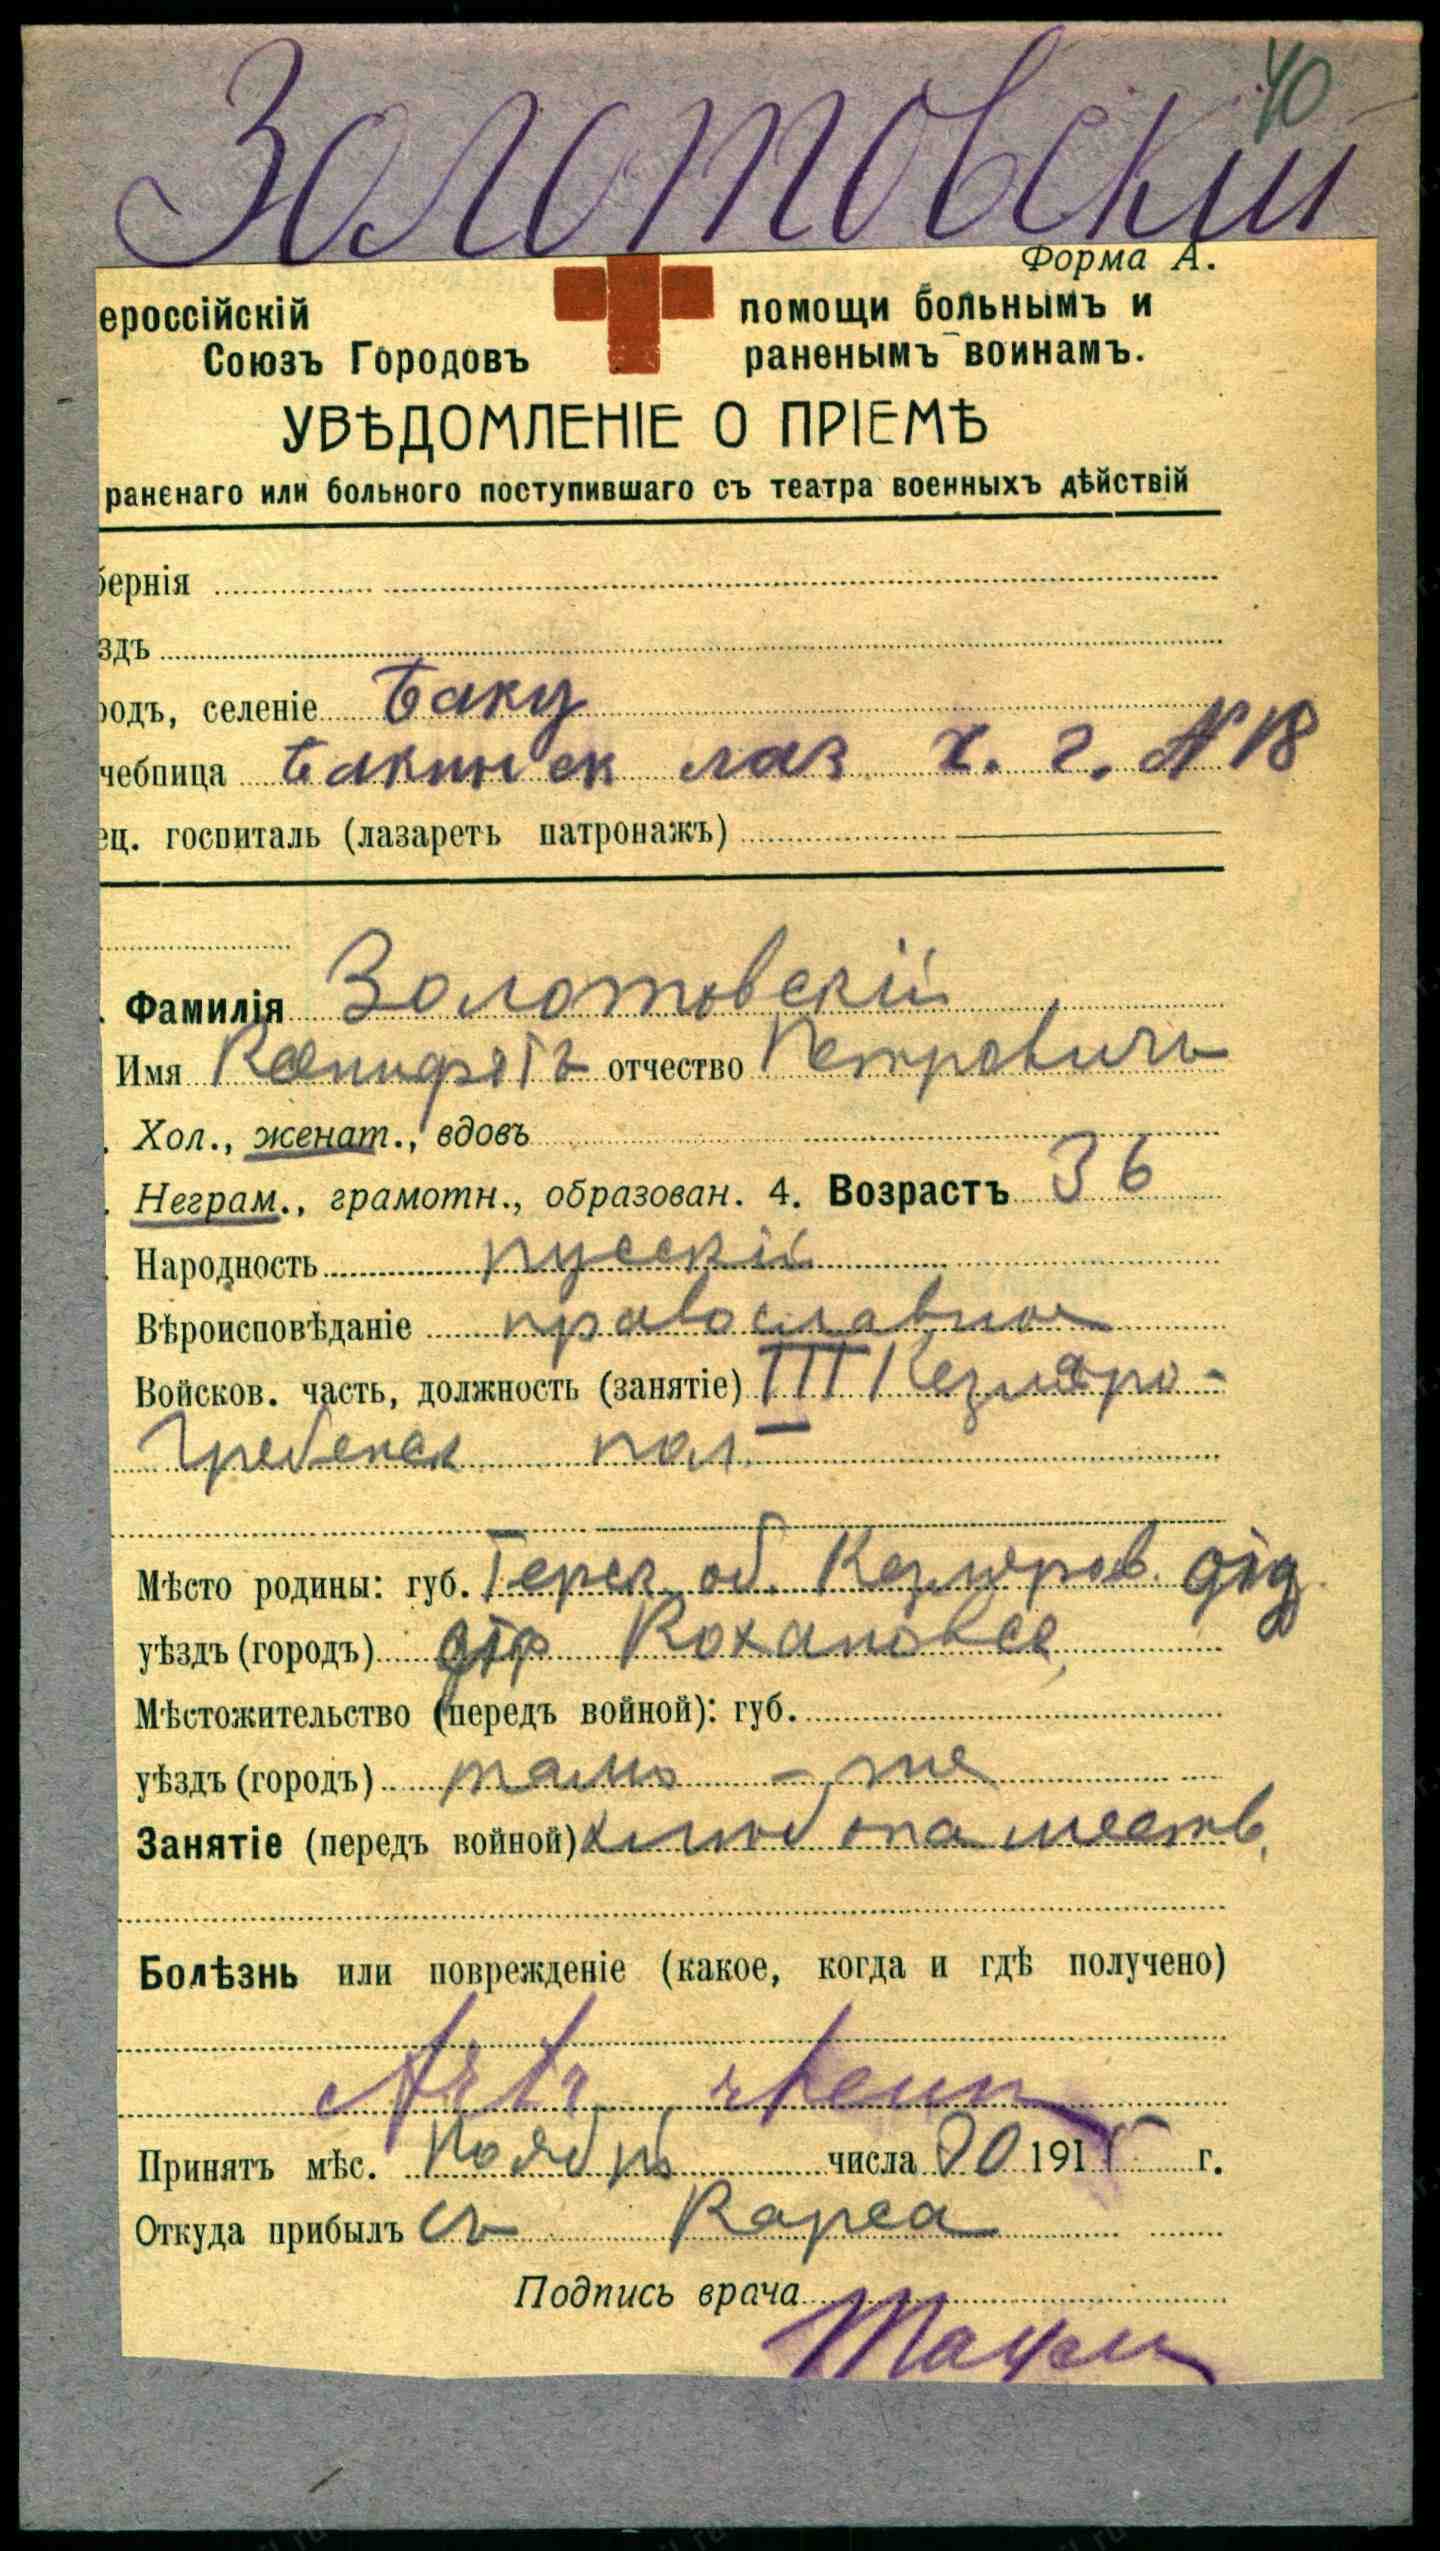 40
Золотовскій
Форма А.
ероссійскій
Союзъ Городовъ
помощи больнымъ и
раненымъ воинамъ.
УВѢДОМЛЕНІЕ О ПРІЕМѢ
раненаго или больного поступившаго съ театра военныхъ дѣйствій
бернія
здъ
родъ, селеніе Баку
чебница Бакинск лаз х. г. № 18
ец. госпиталь (лазаретъ патронажъ)
Фамилія Золотовскій
Имя отчество Петровичъ
Хол., женат., вдовъ
Неграм., грамотн., образован. 4. Возрастъ 36
Народность русскій
Вѣроисповѣданіе православное
Войсков. часть, должность (занятіе) III Кезляро-
Гребенск пол
Мѣсто родины: губ. Терск. об. Кезляров. отд
уѣздъ (городъ) Кохановск
Мѣстожительство (передъ войной): губ.
уѣздъ (городъ) тамъ - же
Занятіе (передъ войной) хлѣбопашеств.
Болѣзнь или поврежденіе (какое, когда и гдѣ получено)
rheum
Принятъ мѣс. Ноябрь числа 20 1915 г.
Откуда прибылъ съ Карса
Подпись врача